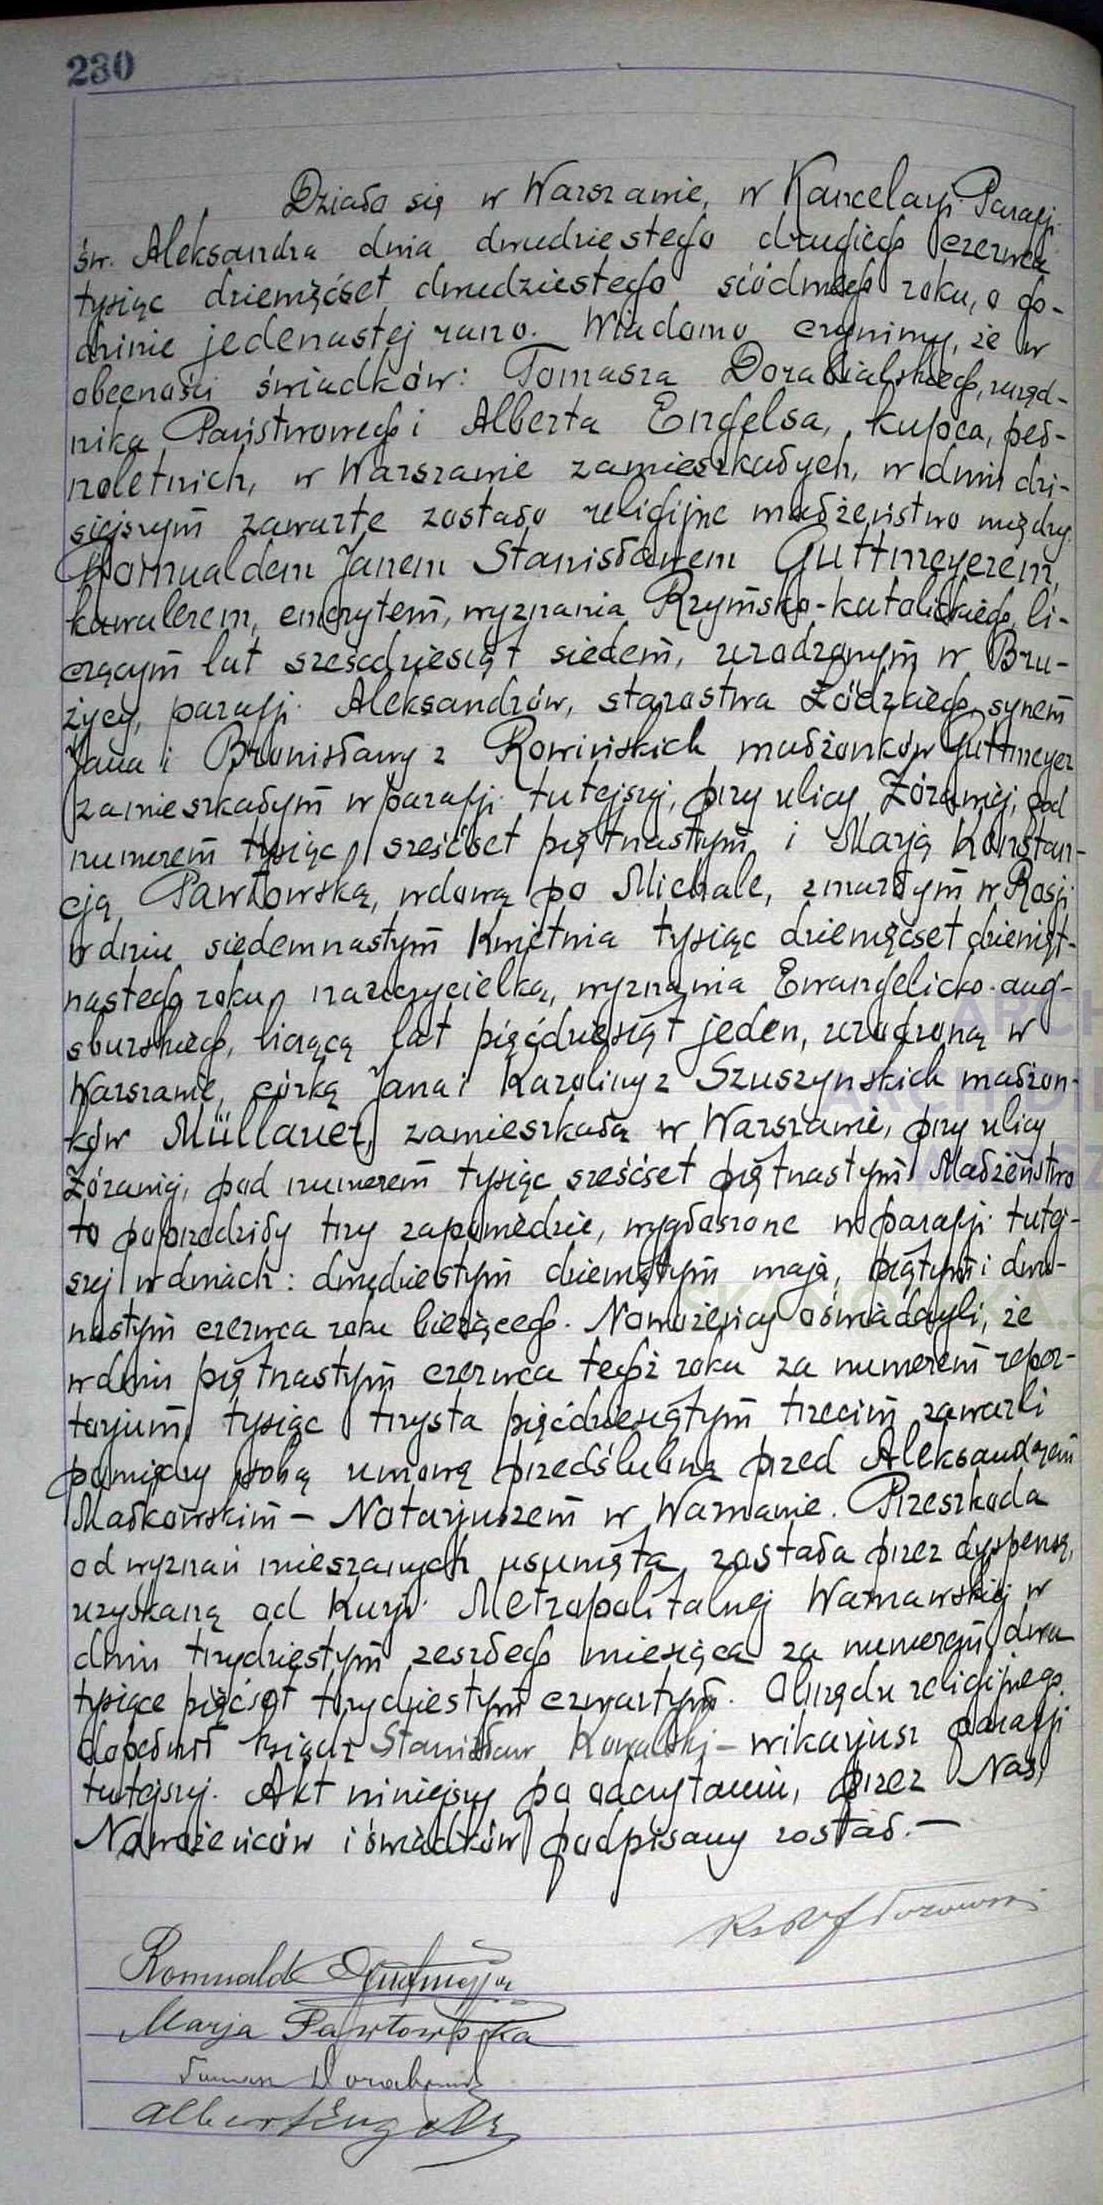 230
Działo się w Warszawie, w Kancelarji Parafji
św. Aleksandra dnia dwudziestego drugiego czerwca
tysiąc dziewięćset dwudziestego siódmego roku, o go-
dzinie jedenastej rano. Wiadomo czynimy, że w
obecności świadków: Tomasza Dorabialskiego, urzęd-
nika Państwowego i Alberta Engelsa, kupca, peł-
noletnich, w Warszawie zamieszkałych, w dniu dzi-
siejszym zawarte zostało religijne małżeństwo między
Romualdem Janem Stanisławem Guttmeyerem,
kawalerem, emerytem, wyznania Rzymsko-katolickiego, li-
czącym lat sześćdziesiąt siedem, urodzonym w Bru-
życy, parafji Aleksandrów, starostwa Łódzkiego, synem
Jana i Bronisławy z Rowińskich małżonków Guttmeyer
zamieszkałym w parafji tutejszej, przy ulicy Żórawiej, pod
numerem tysiąc sześćset piętnastym, i Marją Konstan-
cją Pawłowską, wdową po Michale, zmarłym w Rosji
w dniu siedemnastym kwietnia tysiąc dziewięćset dziewięt-
nastego roku, nauczycielką, wyznania Ewangelicko-aug-
sburskiego, liczącą lat pięćdziesiąt jeden, urodzoną w
Warszawie, córką Jana i Karoliny z Szuszynskich małżon-
ków Müllauer, zamieszkałą w Warszawie, przy ulicy
Żórawiej, pod numerem tysiąc sześćset piętnastym. Małżeństwo
to poprzedziły trzy zapowiedzie, wygłoszone w parafji tutej-
szej w dniach: dwudziestym dziewiątym maja, piątym i dwu-
nastym czerwca roku bieżącego. Nowożeńcy oświadczyli, że
w dniu piętnastym czerwca tegoż roku za numerem reper-
torjum tysiąc trzysta pięćdziesiątym trzecim zawarli
pomiędzy sobą umowę przedślubną przed Aleksandrem
Małkowskim – Notarjuszem w Warszawie. Przeszkoda
od wyznań mieszanych usunięta została przez dyspensę,
uzyskaną od Kurji Metropolitalnej Warszawskiej w
dniu trzydziestym zeszłego miesiąca za numerem dwa
tysiące pięćset trzydziestym czwartym. Obrzędu religijnego
dopełnił ksiądz Stanisław Kowalski – wikarjusz parafji
tutejszej. Akt niniejszy po odczytaniu, przez Nas,
Nowożeńców i świadków podpisany został. –
Romuald Guttmeyer
Marja Pawłowska
Albert Engels